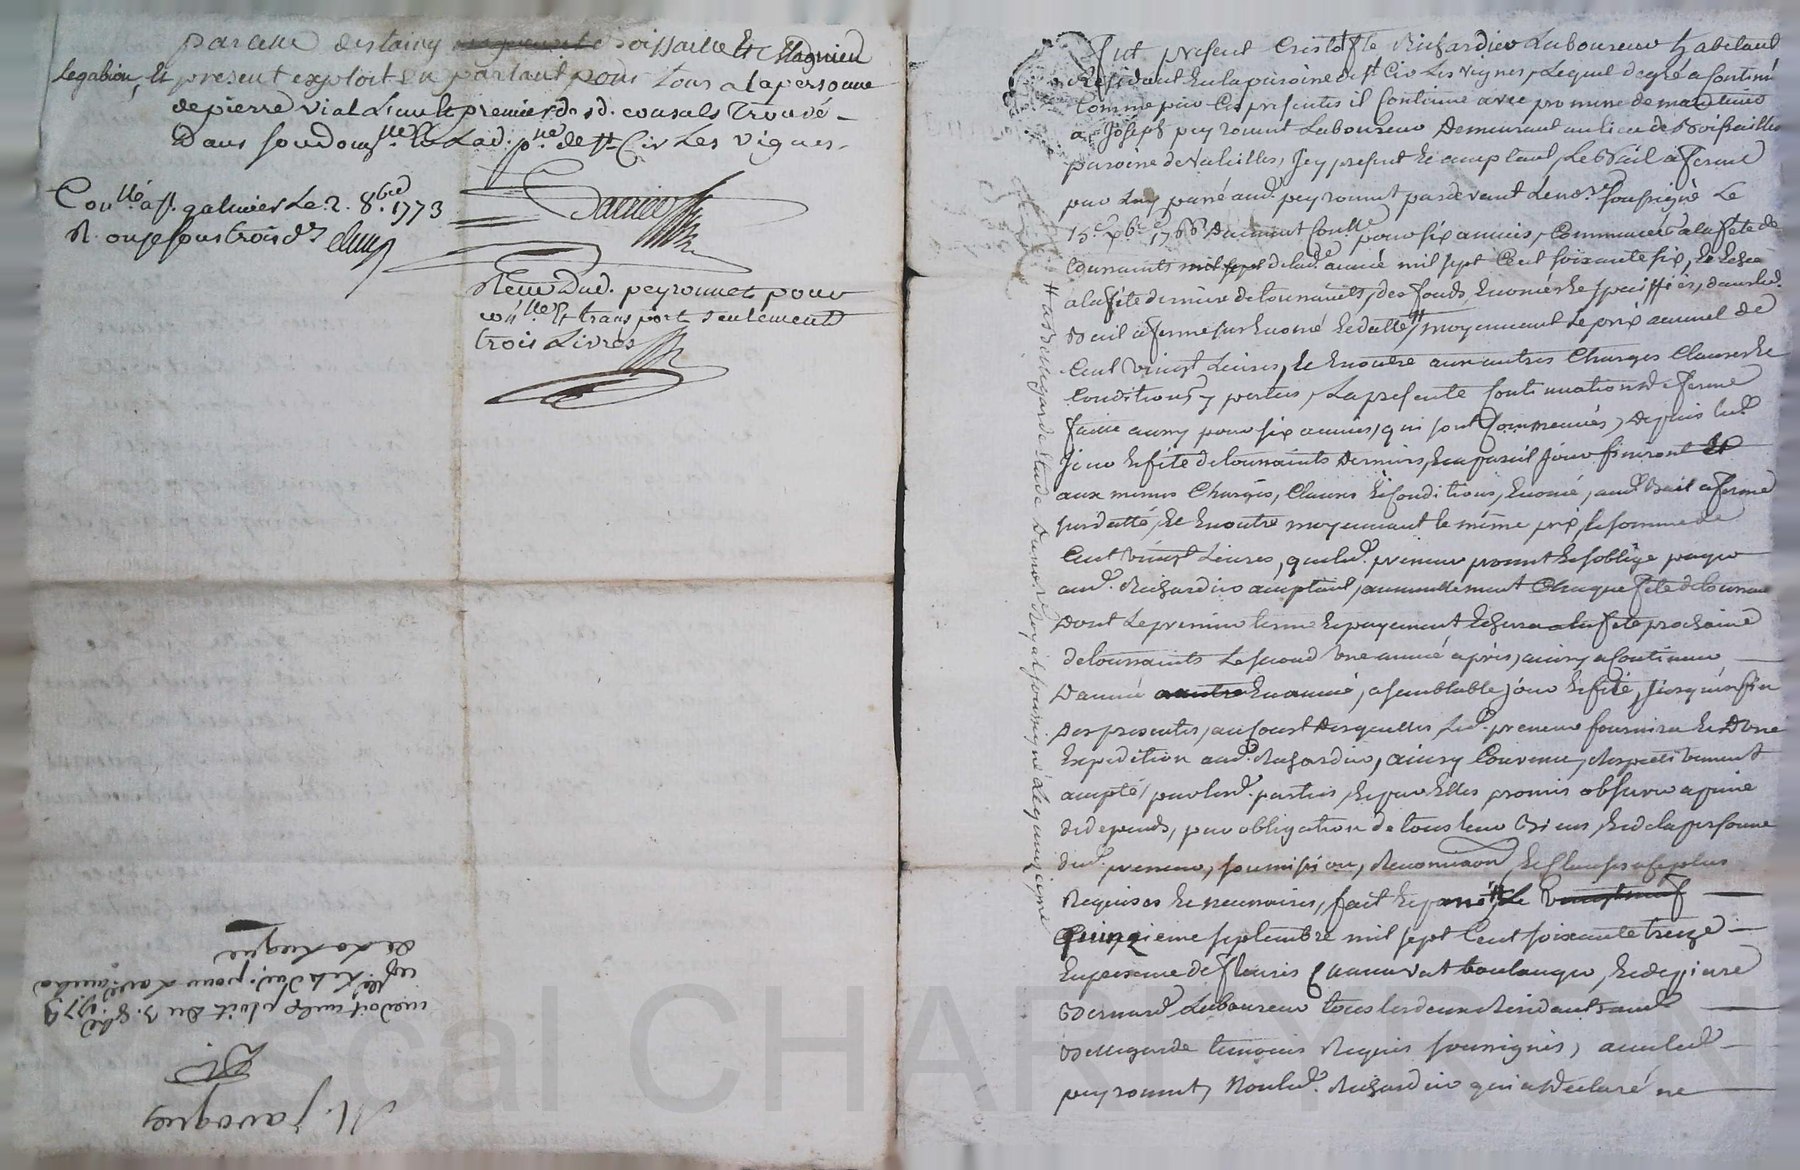 par celle destainy Boissaille et Magnieu
Legabion, et present exploit en parlant pour tous a la personne
de pierre vial L'un et premier d. sd. consuls trouvé
Dans son domlle en Lad. psse de st Cir Les Vignes.
Conllé a st galmier Le 2. 8bre 1773
R. onze sous trois drs
Reçu Dud. peyronnet pour
conlle et transport seulement
trois Livres
Fut present Cristofle Richardier Laboureur habitant
Residant en La paroisse de st Cir Les Vignes, Lequel de gré a continué
Comme par Ces presentes il Continue avec promesse de maintenir
a Joseph peyronnet Laboureur Demeurant au lieu de Boissailles
paroisse de Valeilles, Icy present et acceptant, Le Bail a ferme
par Luy passé aud. peyronnet par devant Le nore soussigné Le
15e xbre 1766 Duement conllé pour six années, Commencées a la fête de
Toussaints de lad. année mil sept Cent soixante six, et
a la fête derniere de toussaints, des fonds Enoncés et spécifiés, dans led.
Bail a ferme sus Enoncé et datté # moyennant Le prix annuel de
Cent Vingt Livres, et En outre aux autres Charges Clauses et
Conditions y portées, La presente Continuation de ferme
faitte aussy pour six années, qui sont Commencées, Depuis led.
Jour et fête de toussaints Derniers, En pareil Jour finiront
aux mêmes Charges, Clauses et Conditions, Enoncé, aud. Bail a ferme
susdatté, et En outre moyennant le même prix et somme de
Cent Vingt Livres, que led. preneur promet et s'oblige payer
aud. Richardier acceptant, annuellement Chaque fête de toussaints
Dont Le premier terme et payement Echera a la fête prochaine
de toussaints Le second Une année après, ainsy a Continuer
D'année En année, a semblable jour et fête, Jusques a fin
Des presentes, au Court Desquelles Led. preneur fournira
Expedition aud. Richardier, ainsy Convenu, Respectivement
accepté, par lesd. parties, et par Elles promis observer a peine
de depends, par obligation de tous leur Biens, et de la personne
dud. preneur, soumission, Renonciaon, et Clauses
Requises et necessaires, fait et passé # Le
Quinzieme septembre mil sept Cent soixante treize
En presence de fleuris Channavat boulanger, et de pierre
Bernard Laboureur tous les deux Residants aud.
Bellegarde temoins Requis soussignés, avec led.
peyronnet, Non led. Richardier qui a Déclaré ne
# a Bellegarde Etude Du nore Royal soussigné Le quinzieme
me doit mes exploit du 3. 8bre 1773
de La ligue
M. javogues